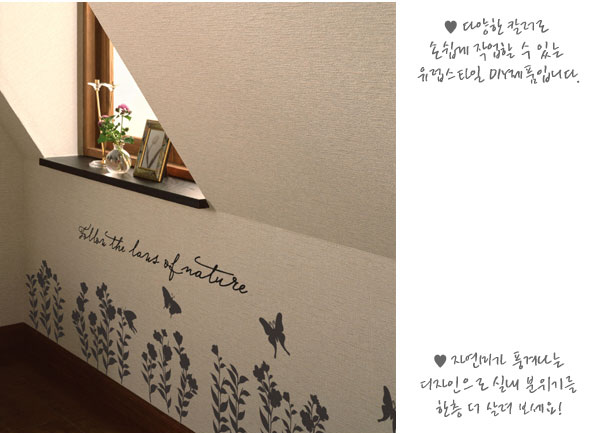 ♥ 다양한 칼러로
손쉽게 작업할 수 있는
유럽스타일 DIY제품입니다.
Follow the laws of nature
♥ 자연미가 풍겨나는
디자인으로 실내 분위기를
한층 더 살려 보세요!